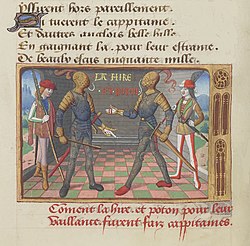 Yssirent hors pareillement.
Si tuerent le cappitaine
Et dautres anglois belle bille
En gaignant la pour leur estraine
De beaulx escus cinquante mille.
LA HIRE
Coment la hire et poton pour leur
vaillance furent faiz cappitaines.